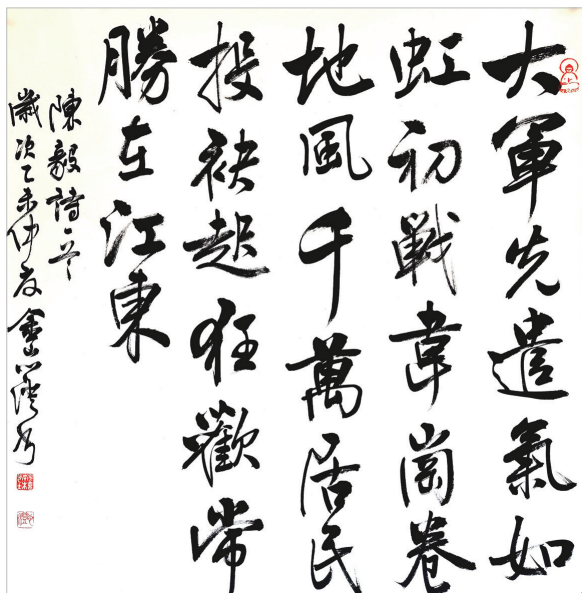 大軍先遣氣如
虹初戰韋崗卷
地風千萬居民
投袂起狂歡常
勝在江東
陳毅詩一首
歲次乙未仲夏金山